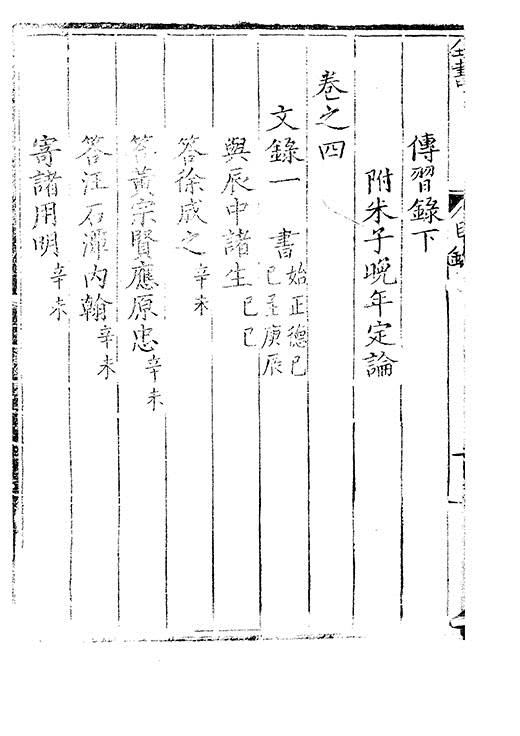 傳習錄下
附朱子晚年定論
卷之四
文錄一 書 始正德己巳至庚辰
與辰中諸生 己巳
答徐成之 辛未
答黃宗賢應原忠 辛未
答汪石潭內翰 辛未
寄諸用明 辛未